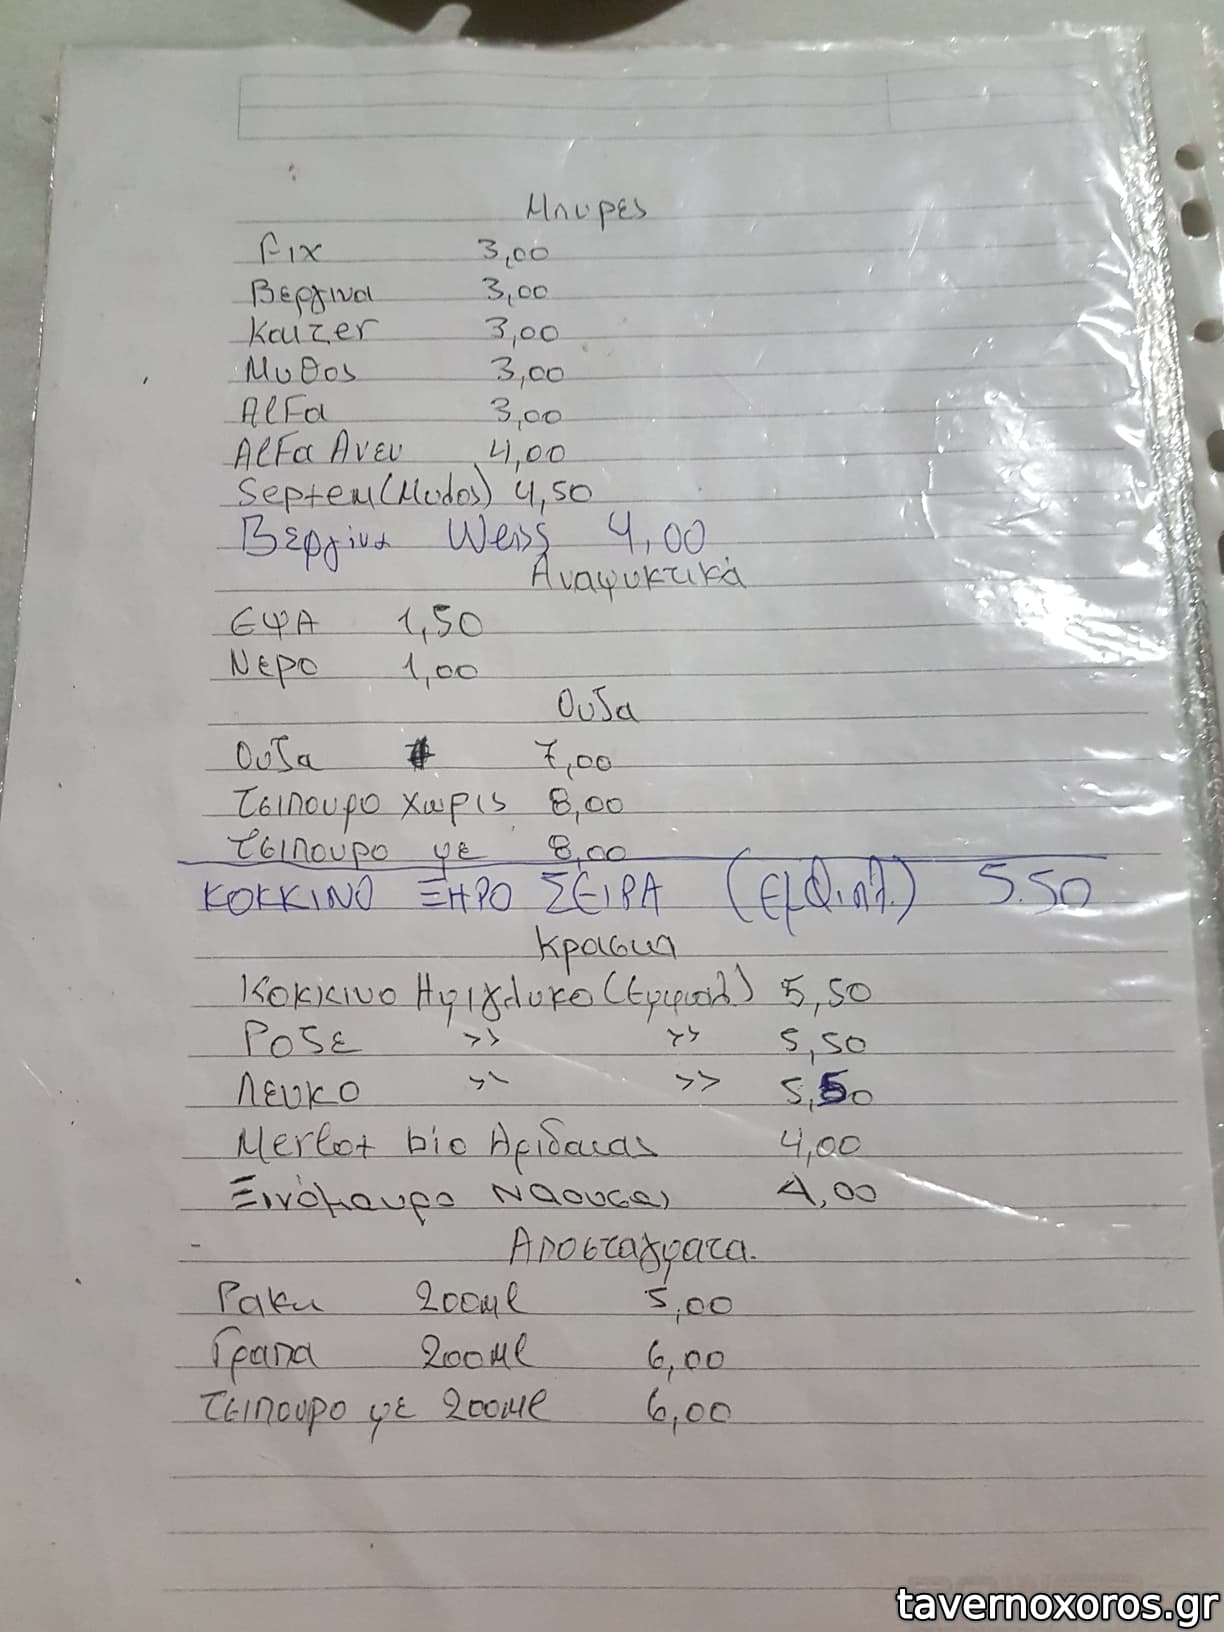 Μπυρες
Fix 3,00
Βεργινα 3,00
Kaizer 3,00
Μυθος 3,00
Alfa 3,00
Alfa Ανευ 4,00
Septem 4,50
Βεργίνα Weiss 4,00
Αναψυκτικά
ΕΨΑ 1,50
Νερο 1,00
Ουζα
Ουζα 7,00
Τσιπουρο χωρις 8,00
Τσιπουρο με 8,00
ΚΟΚΚΙΝΟ ΞΗΡΟ ΣΕΙΡΑ (Εμφιαλ.) 5.50
Κρασια
Κοκκινο Ημιγλυκο (Εμφιαλ) 5,50
Ροζε >> >> 5,50
Λευκο >> >> 5,50
Merlot bio Αριδαιας 4,00
Ξινόμαυρο Ναουσας 4,00
Αποσταγματα.
Ρακι 200ml 5,00
Γραπα 200ml 6,00
Τσιπουρο με 200ml 6,00
tavernoxoros.gr